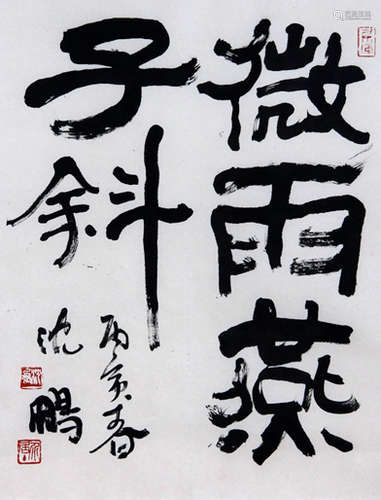 微雨燕
子斜
丙寅春
沈鹏